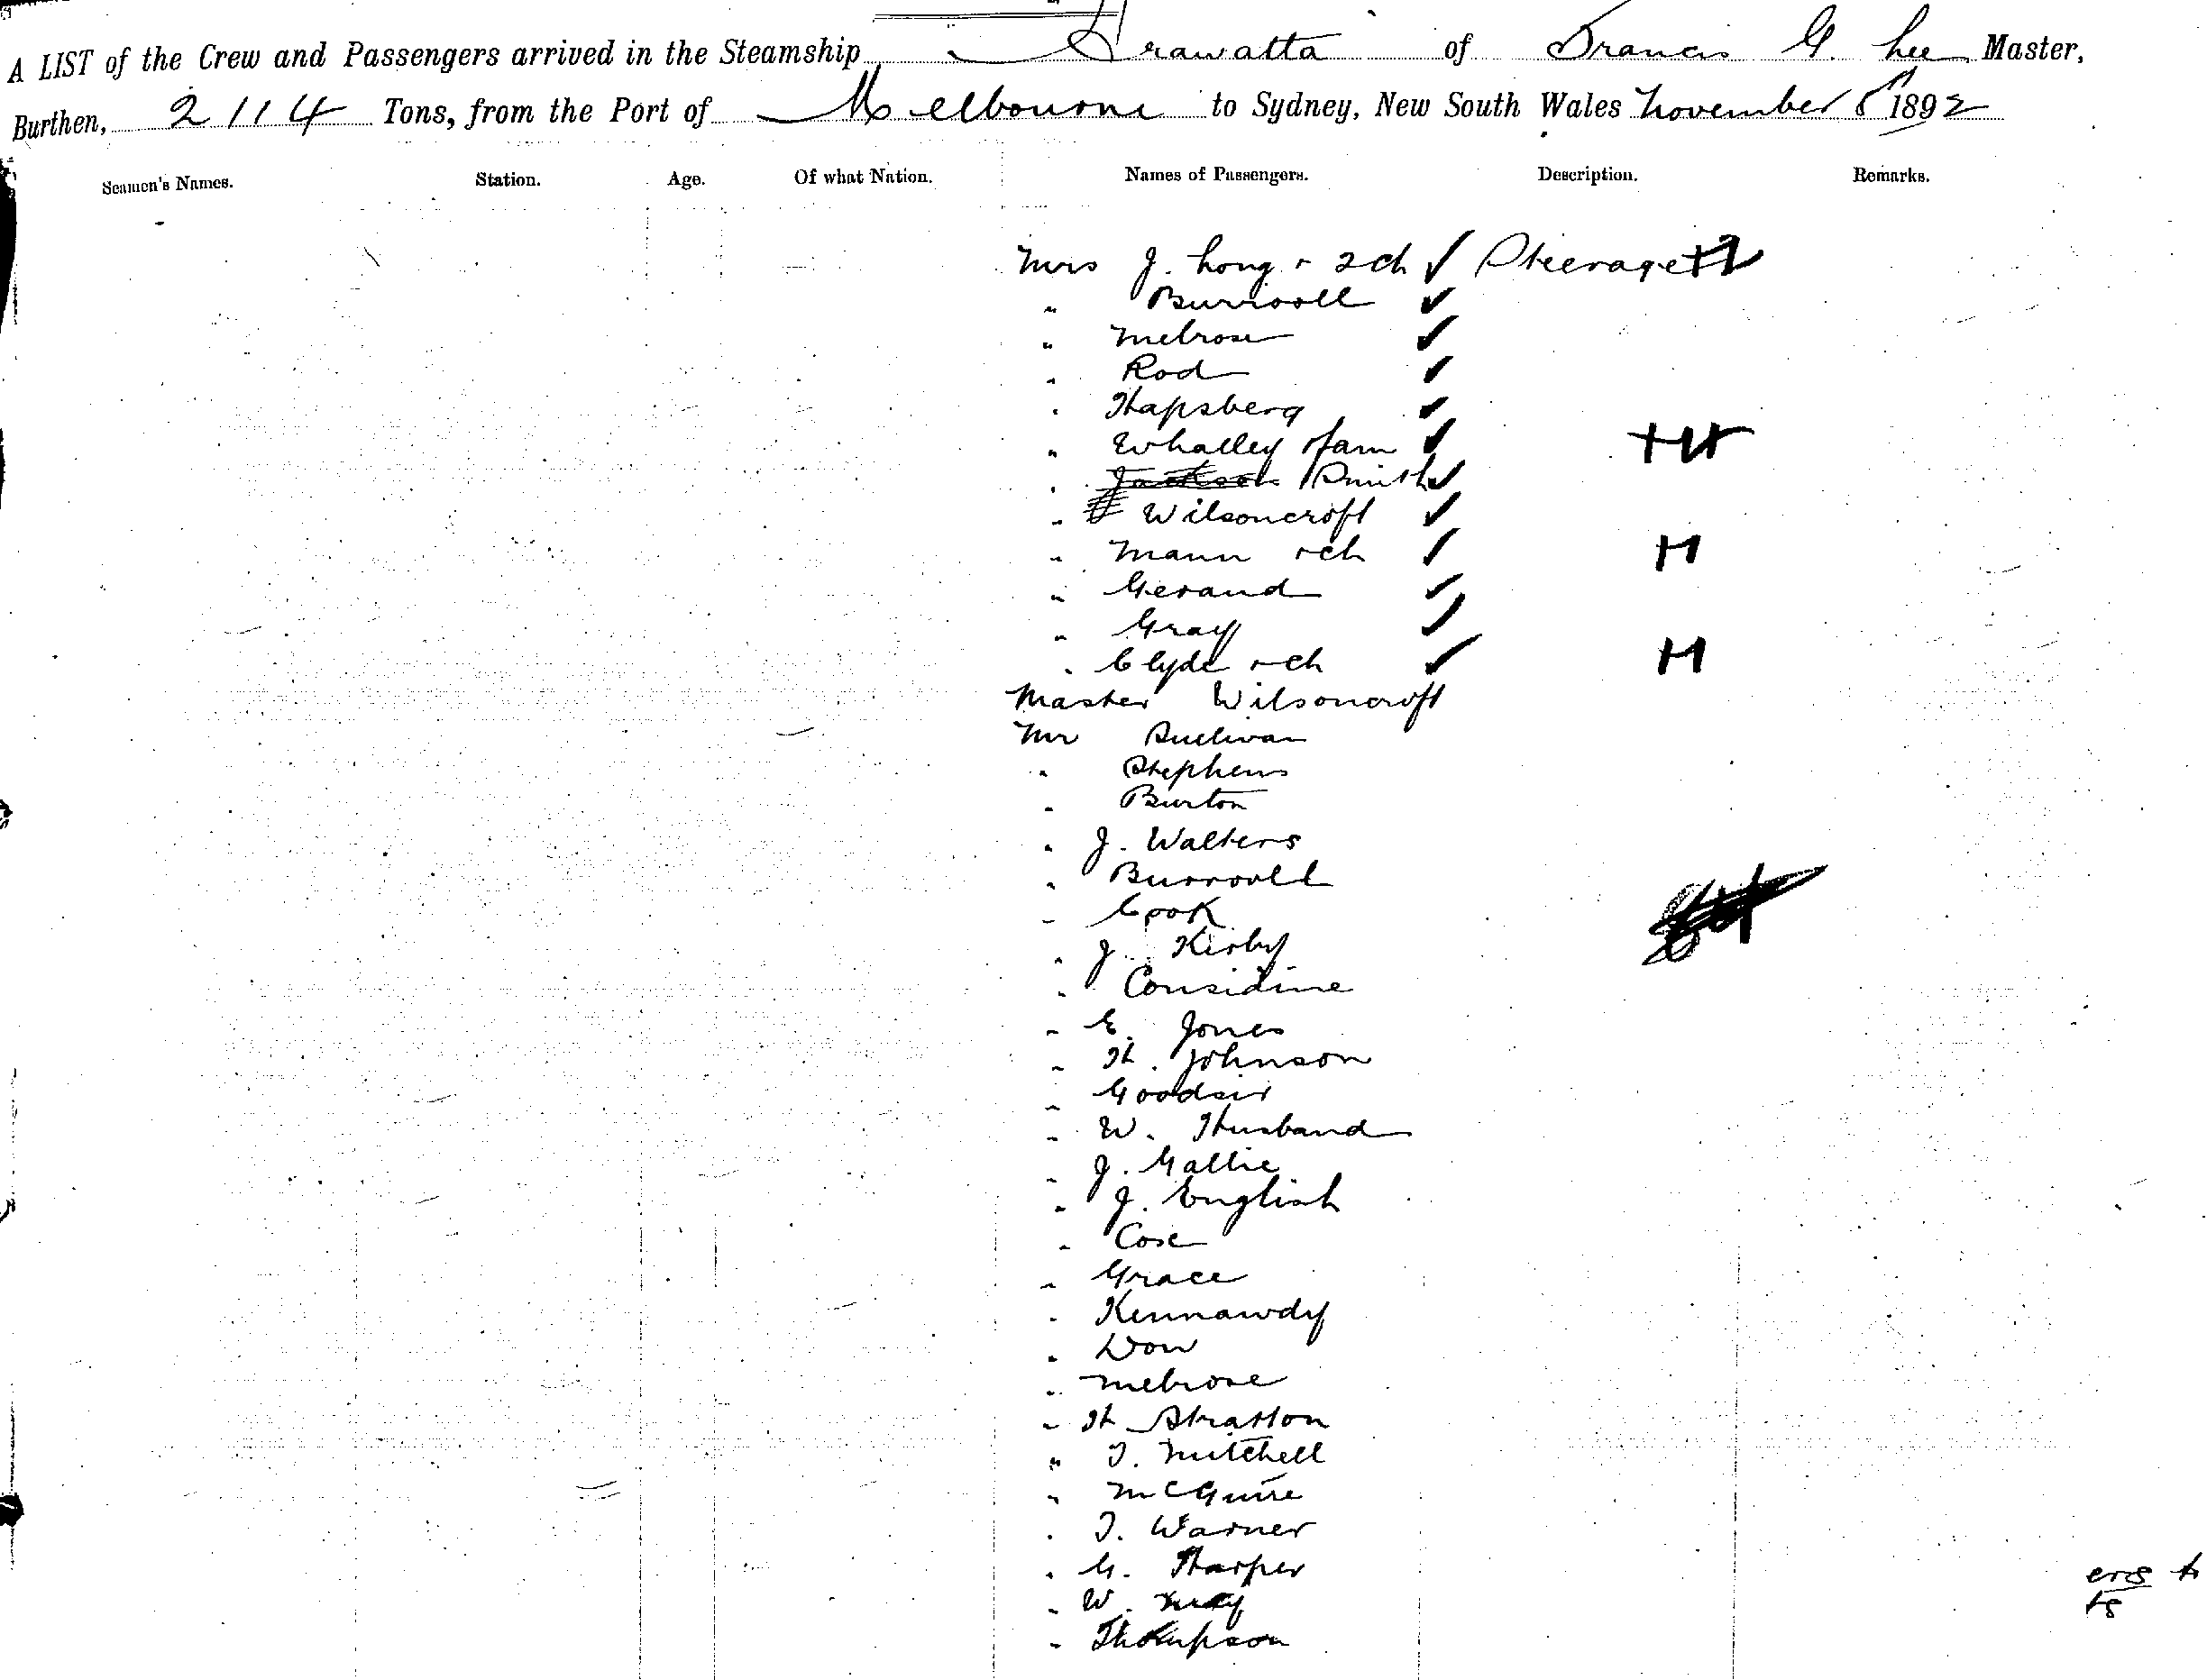 A LIST of the Crew and Passengers arrived in the Steamship Arawatta of Francis G. Lee Master,
Burthen, 2114 Tons, from the Port of Melbourne to Sydney, New South Wales November 8 1892
Seamen's Names. Station. Age. Of what Nation. Names of Passengers. Description. Remarks.
Mrs J. Long + 2 ch ✓ Steerage
" Burrowll ✓
" Melrose ✓
" Rod ✓
" Hapsberg ✓
" Whalley + fam ✓
" Jackson Smith ✓
" Wilsoncroft ✓
" Mann + ch ✓
" Gerand ✓
" Gray ✓
" Clyde + ch ✓
Master Wilsoncroft
Mr Sullivan
" Stephens
" Burton
" J. Walters
" Burrowll
" Cook
" J. Kirby
" Considine
" E. Jones
" H. Johnson
" Goodsir
" W. Husband
" J. Gallie
" J. English
" Cose
" Grace
" Kennawdy
" Dow
" Melrose
" H Stratton
" T. Mitchell
" McGuire
" T. Warner
" G. Harper
" W.
" Thompson